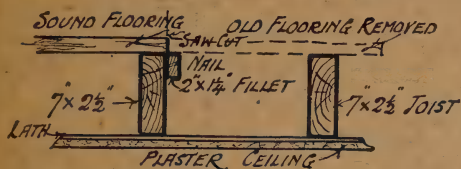 SOUND FLOORING
OLD FLOORING REMOVED
SAW CUT
NAIL
2"x1¼" FILLET
7"x 2½"
7"x2½" JOIST
LATH
PLASTER CEILING